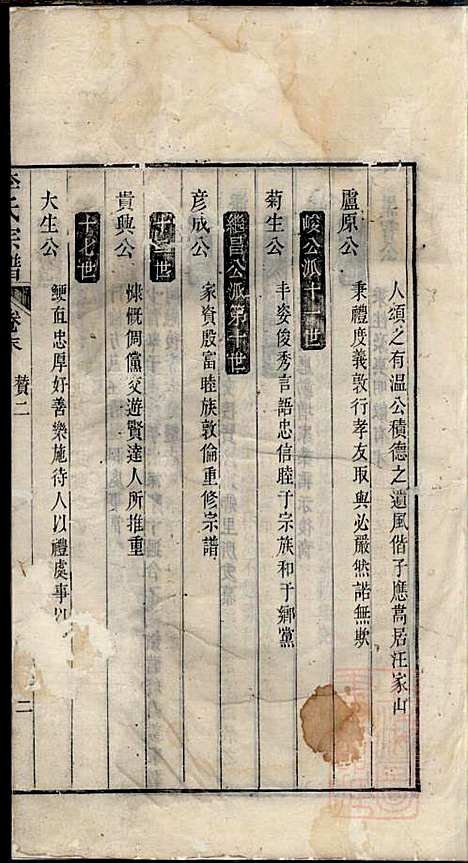 人頌之有温公積德之遺風偕子應嵩居汪家山
盧原公
秉禮度義敦行孝友取與必嚴然諾無欺
峻公派十一世
菊生公
丰姿俊秀言語忠信睦于宗族和于鄉黨
繼昌公派第十世
彦成公
家資殷富睦族敦倫重修宗譜
十二世
貴興公
慷慨倜儻交遊賢達人所推重
十七世
大生公
鯁直忠厚好善樂施待人以禮處事以
李氏宗譜 卷末 贊二 二